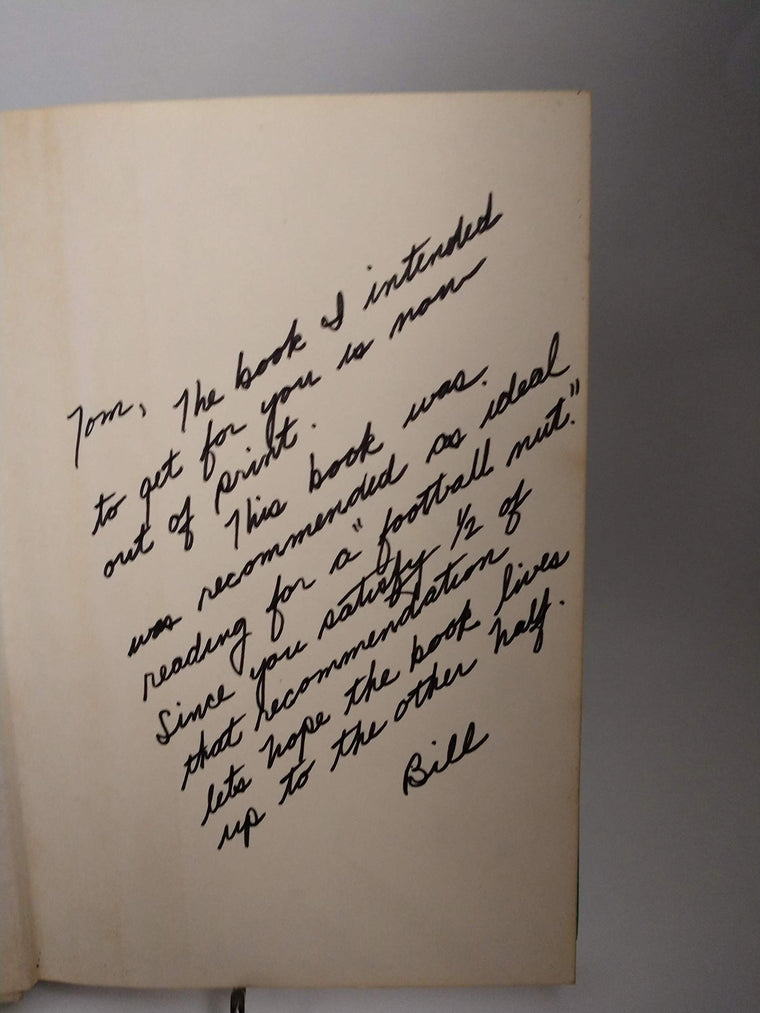 Tom, The book I intended
to get for you is now
out of print.
This book was.
was recommended as ideal
reading for a "football nut."
Since you satisfy 1/2 of
that recommendation
lets hope the book lives
up to the other half.
Bill